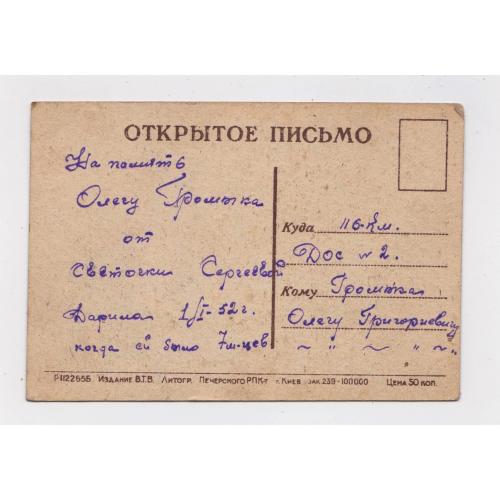 ОТКРЫТОЕ ПИСЬМО
На память
Олегу Громтка
от
Светочки Сергеевой
Дарила 1/I-52г.
когда ей было 7м-цев
Куда 116-км.
Дос № 2.
Кому Громтка
Олегу Григориевичу
~ " ~ " ~ "
Г-1122655 Издание В.Т.В. Литогр. Печерского РПК-т г. Киев зак. 239-100000 Цена 50 коп.